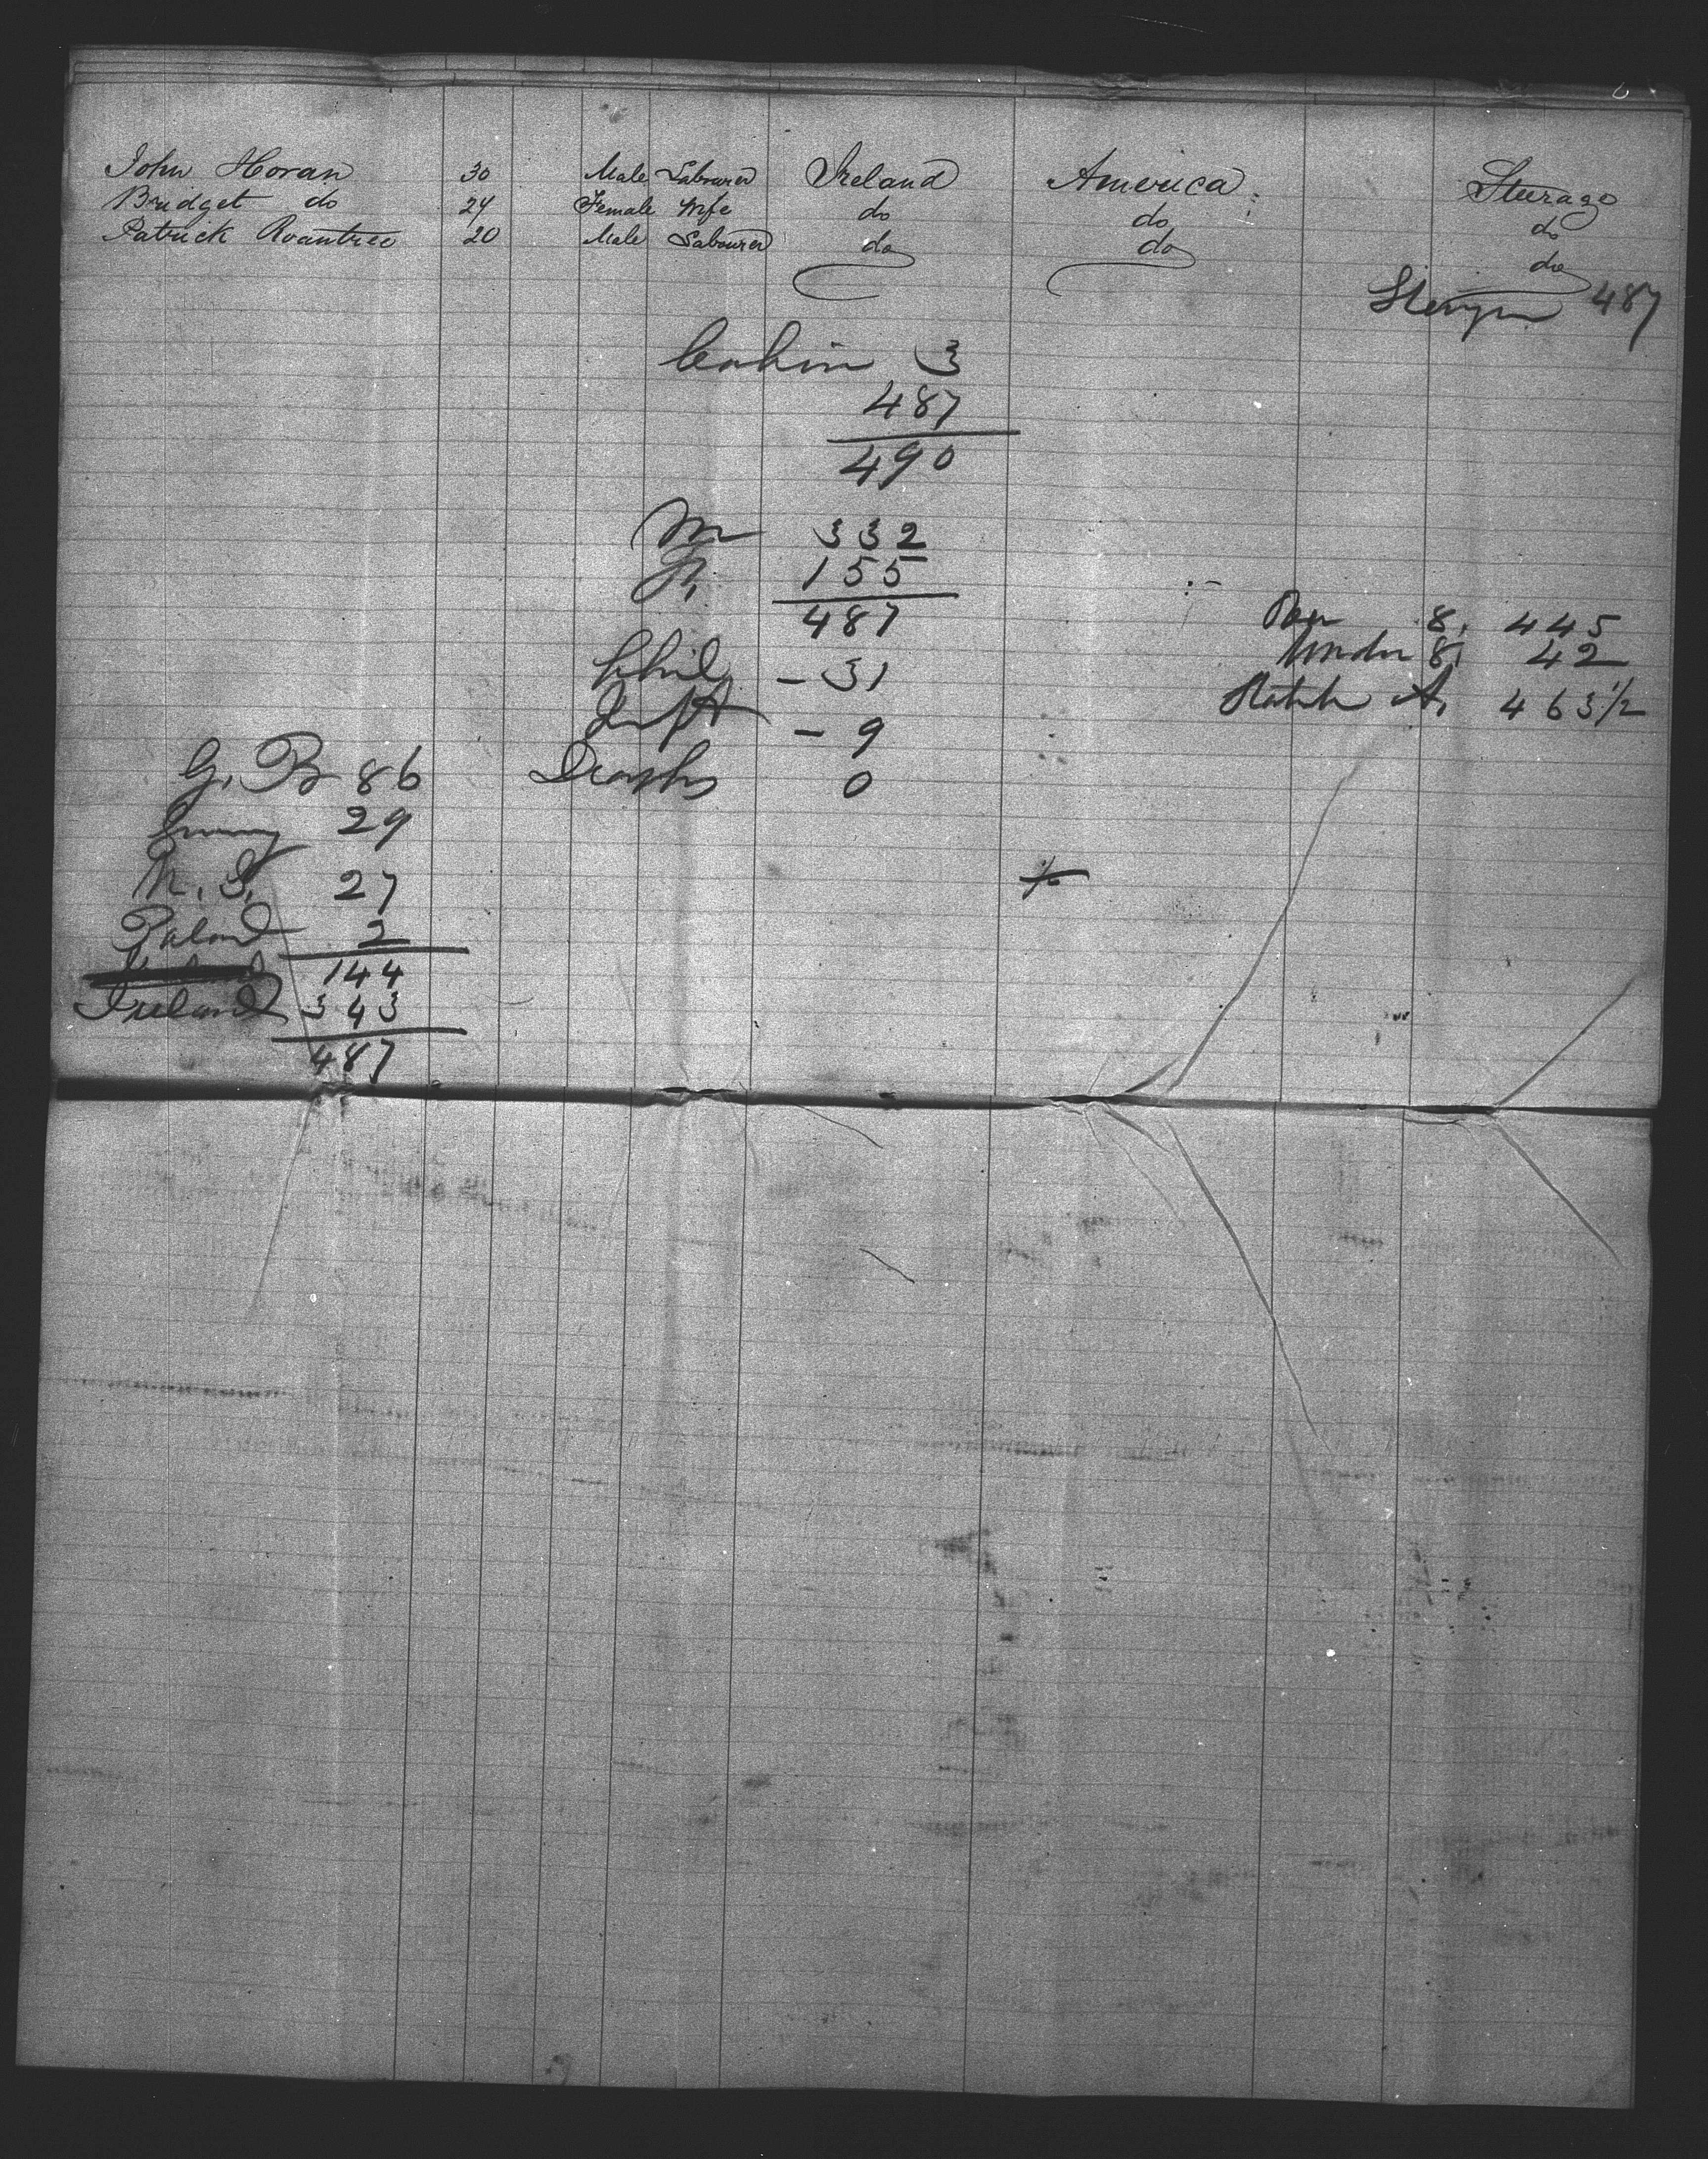 John Horan 30 Male Labourer Ireland America Steerage
Bridget do 24 Female Wife do do do
Patrick Roantree 20 Male Labourer do do do
487
Cabin 3
487
490
M 332
F, 155
487
Over 8, 445
Under 8, 42
Statute A, 463 1/2
Chil - 31
Inft - 9
Deaths 0
G. B 86
29
U. S. 27
Poland 2
144
Ireland 343
487